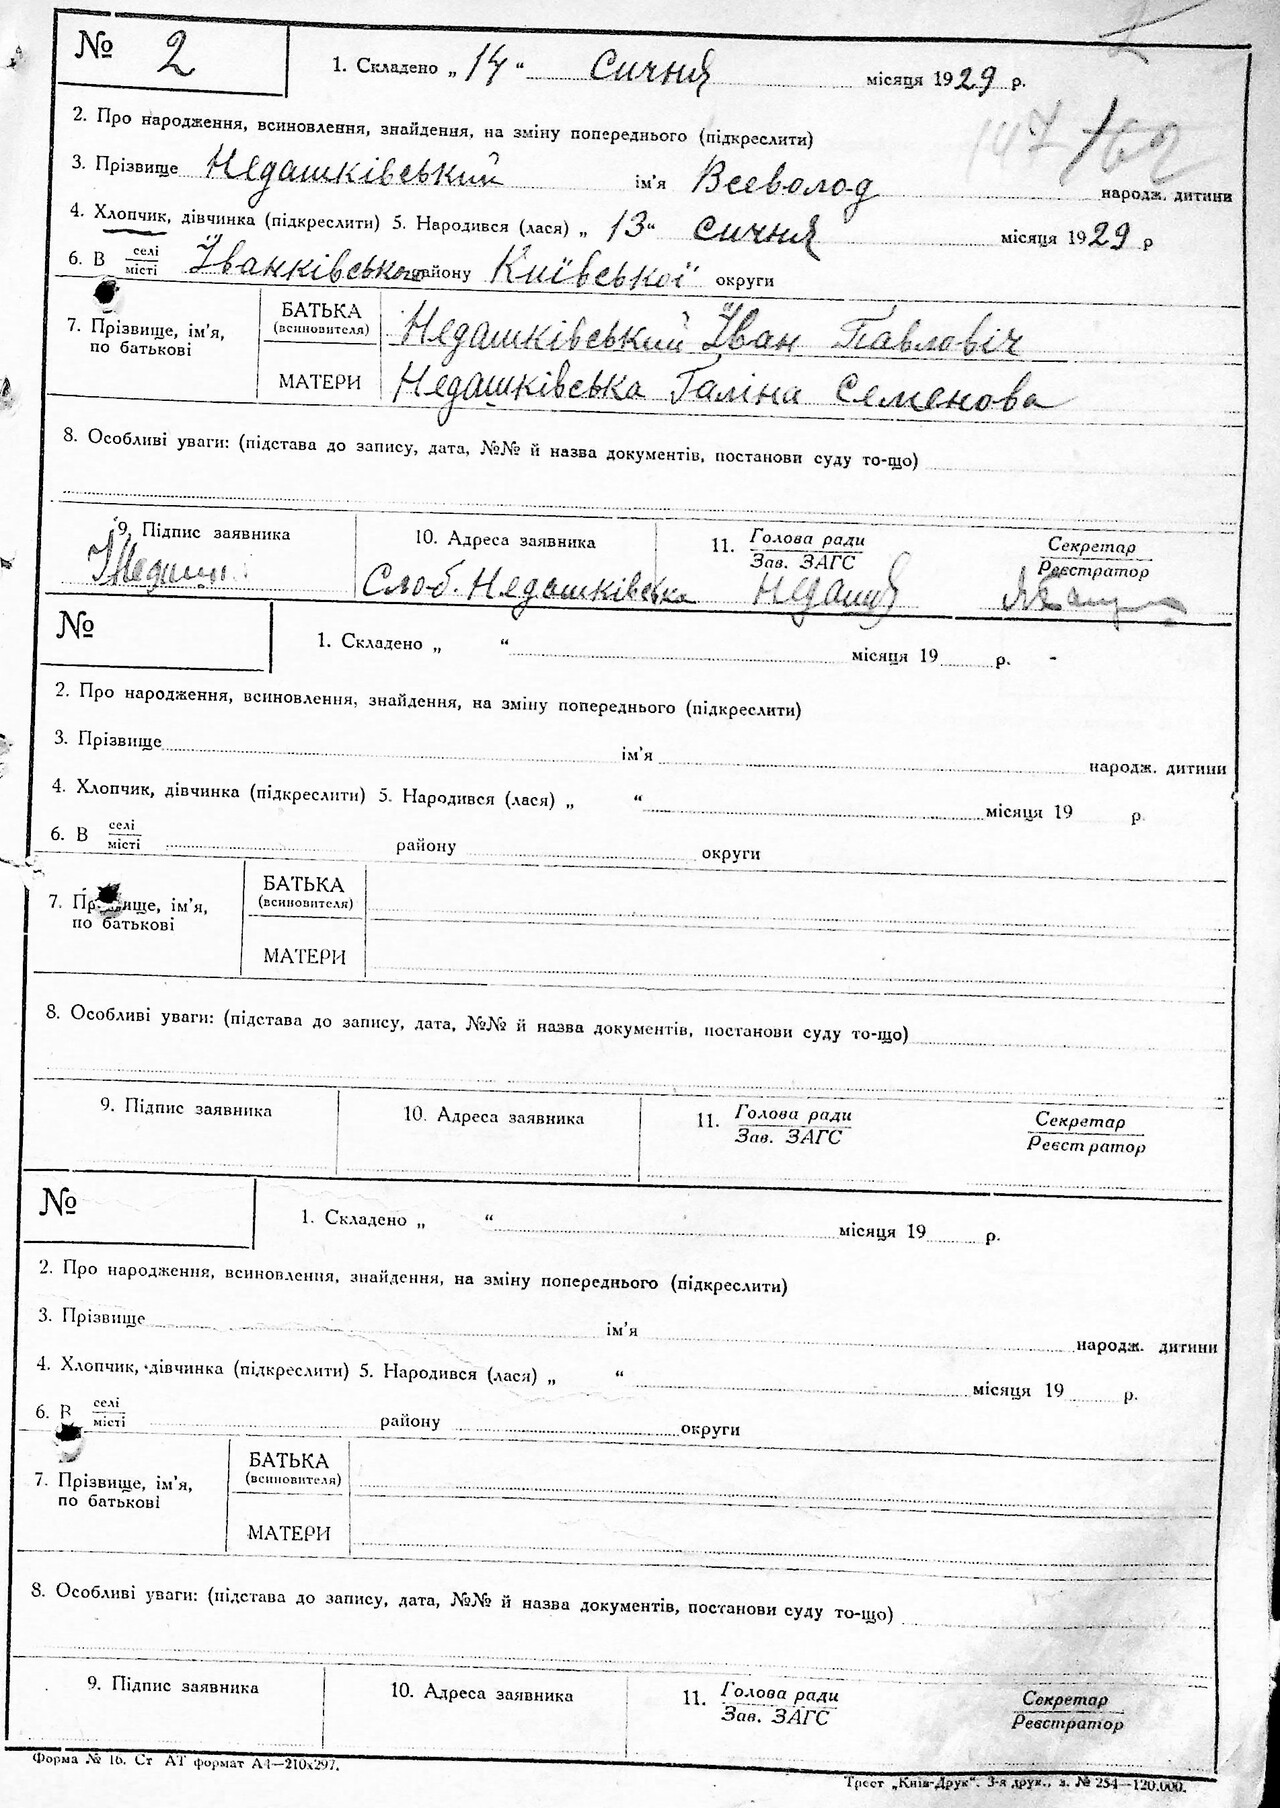 № 2 1. Складено „ 14 “ Сичня місяця 1929 р.
2. Про народження, всиновлення, знайдення, на зміну попереднього (підкреслити)
147/62
3. Прізвище Недашківський ім'я Всеволод народж. дитини
4. Хлопчик, дівчинка (підкреслити) 5. Народився (лася) „ 13 “ сичня місяця 1929 р
6. В селі/місті Іванківського району Київської округи
7. Прізвище, ім'я, по батькові
БАТЬКА (всиновителя) Недашківський Іван Павловіч
МАТЕРИ Недашківська Галіна Семенова
8. Особливі уваги: (підстава до запису, дата, №№ й назва документів, постанови суду то-що)
9. Підпис заявника 10. Адреса заявника 11. Голова ради/Зав. ЗАГС Секретар/Реєстратор
Слоб. Недашківська
№ 1. Складено „ “ місяця 19 р.
2. Про народження, всиновлення, знайдення, на зміну попереднього (підкреслити)
3. Прізвище ім'я народж. дитини
4. Хлопчик, дівчинка (підкреслити) 5. Народився (лася) „ “ місяця 19 р.
6. В селі/місті району округи
7. Прізвище, ім'я, по батькові
БАТЬКА (всиновителя)
МАТЕРИ
8. Особливі уваги: (підстава до запису, дата, №№ й назва документів, постанови суду то-що)
9. Підпис заявника 10. Адреса заявника 11. Голова ради/Зав. ЗАГС Секретар/Реєстратор
№ 1. Складено „ “ місяця 19 р.
2. Про народження, всиновлення, знайдення, на зміну попереднього (підкреслити)
3. Прізвище ім'я народж. дитини
4. Хлопчик, дівчинка (підкреслити) 5. Народився (лася) „ “ місяця 19 р.
6. В селі/місті району округи
7. Прізвище, ім'я, по батькові
БАТЬКА (всиновителя)
МАТЕРИ
8. Особливі уваги: (підстава до запису, дата, №№ й назва документів, постанови суду то-що)
9. Підпис заявника 10. Адреса заявника 11. Голова ради/Зав. ЗАГС Секретар/Реєстратор
Форма № 16. Ст АТ формат А4—210х297.
Трест „Київ-Друк“. 3-я друк., з. № 254—120.000.